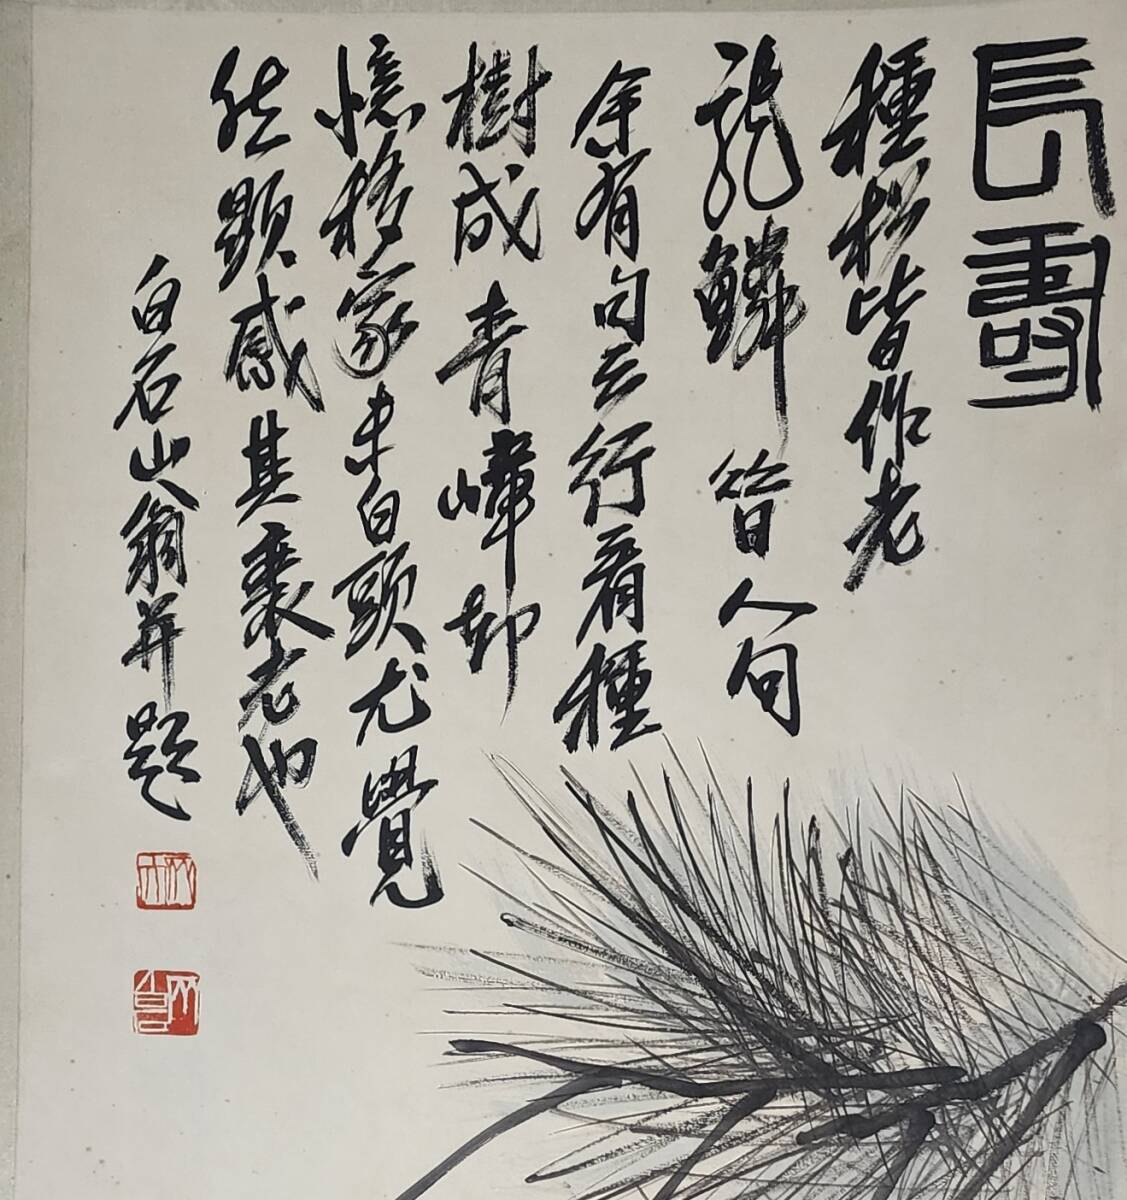 長壽
種松皆作老
龍鱗昔人句
余有句云行看種
樹成青嶂却
憶移家未白頭尤覺
然顯感其衰老也
白石山翁并題